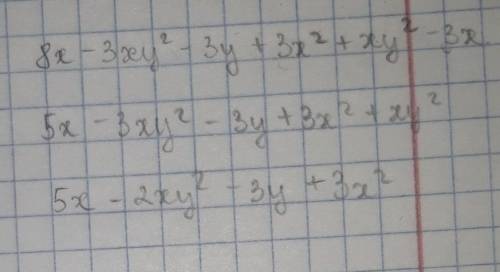 8x - 3xy² - 3y + 3x² + xy² - 3x
5x - 3xy² - 3y + 3x² + xy²
5x - 2xy² - 3y + 3x²